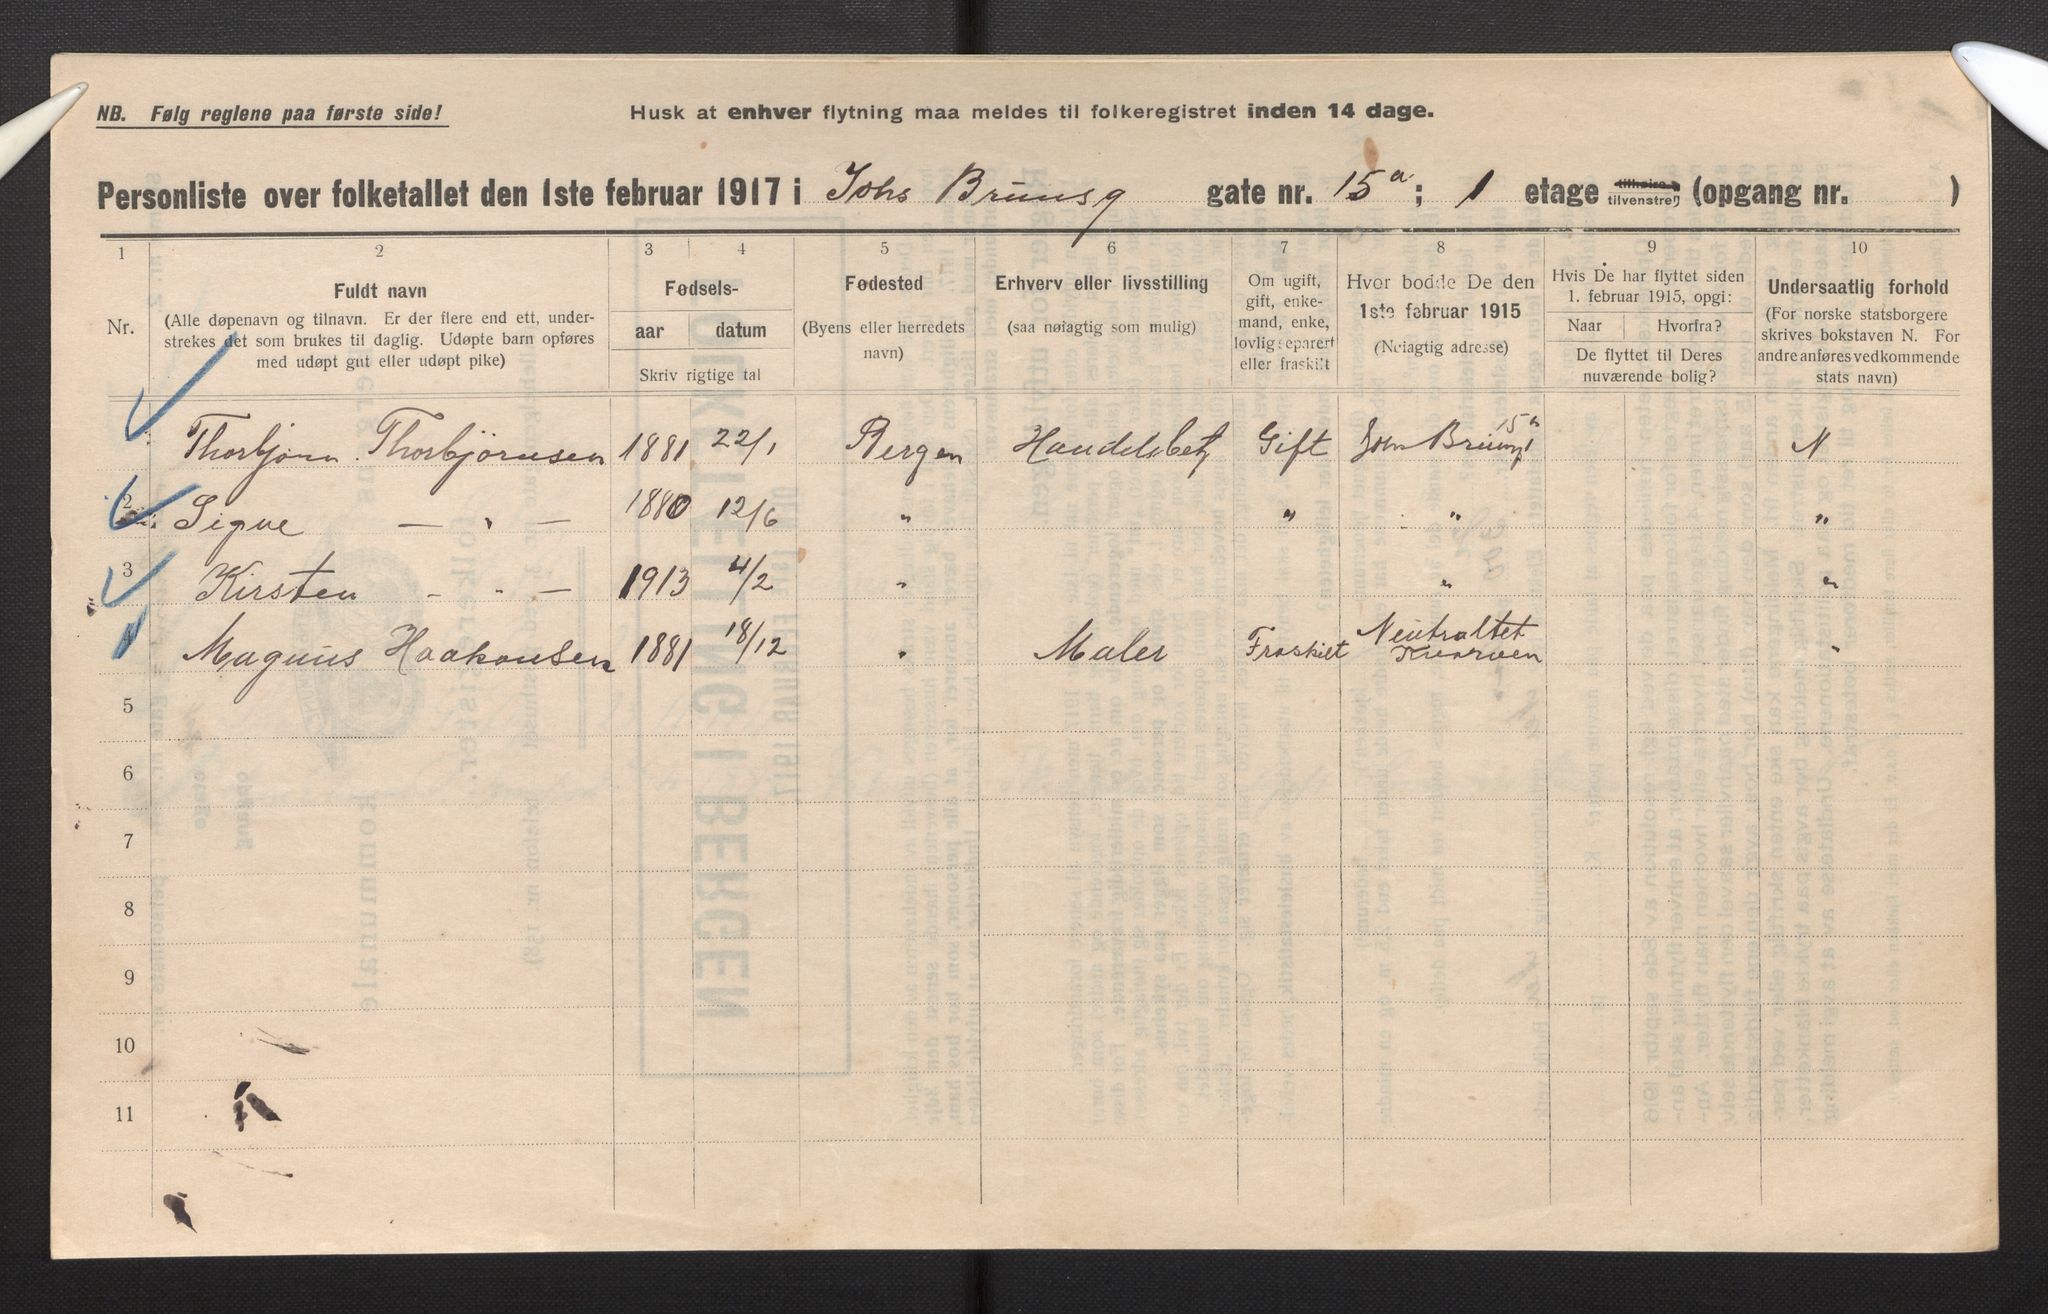 NB. Følg reglene paa første side!
Husk at enhver flytning maa meldes til folkeregistret inden 14 dage.
Personliste over folketallet den 1ste februar 1917 i Johs Brunsg gate nr. 15a ; 1 etage tilhøire tilvenstre) (opgang nr. )
1 2 3 4 5 6 7 8 9 10
Nr.
Fuldt navn
(Alle døpenavn og tilnavn. Er der flere end ett, under-
strekes det som brukes til daglig. Udøpte barn opføres
med udøpt gut eller udøpt pike)
Fødsels-
aar datum
Skriv rigtige tal
Fødested
(Byens eller herredets
navn)
Erhverv eller livsstilling
(saa nøiagtig som mulig)
Om ugift,
gift, enke-
mand, enke,
lovlig separert
eller fraskilt
Hvor bodde De den
1ste februar 1915
(Nøiagtig adresse)
Hvis De har flyttet siden
1. februar 1915, opgi:
Naar Hvorfra?
De flyttet til Deres
nuværende bolig?
Undersaatlig forhold
(For norske statsborgere
skrives bokstaven N. For
andre anføres vedkommende
stats navn)
Thorbjørn Thorbjörnsen 1881 22/1 Bergen Handelsbetj Gift John Brunsg 15a N
2 Signe — " — 1880 12/6 " " " "
3 Kirsten - " - 1913 4/2 " " "
4 Magnus Haakonsen 1881 18/12 " Maler Fraskilt Neutraltet "
5
6
7
8
9
10
11